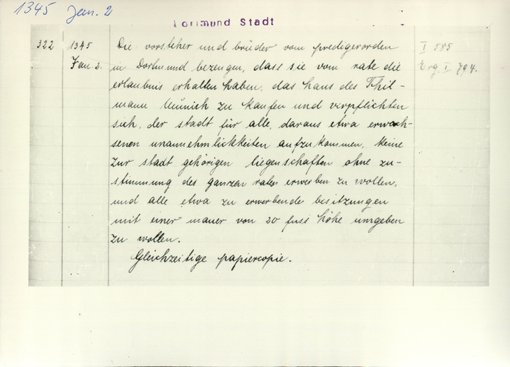 1345 Jan. 2
Dortmund Stadt
322 1345 Jan. 2.
Die vorsteher und brüder vom predigerorden
in Dortmund bezeugen, dass sie vom rate die
erlaubnis erhalten haben, das haus des Thil-
mann zu kaufen und verpflichten
sich, der stadt für alle, daraus etwa erwach-
senen unannehmlichkeiten aufzukommen, keine
zur stadt gehörigen liegenschaften ohne zu-
stimmung des ganzen rates erwerben zu wollen,
und alle etwa zu erwerbende besitzungen
mit einer mauer von 20 fuss höhe umgeben
zu wollen.
Gleichzeitige papiercopie.
I 585
Erg. I. 794.